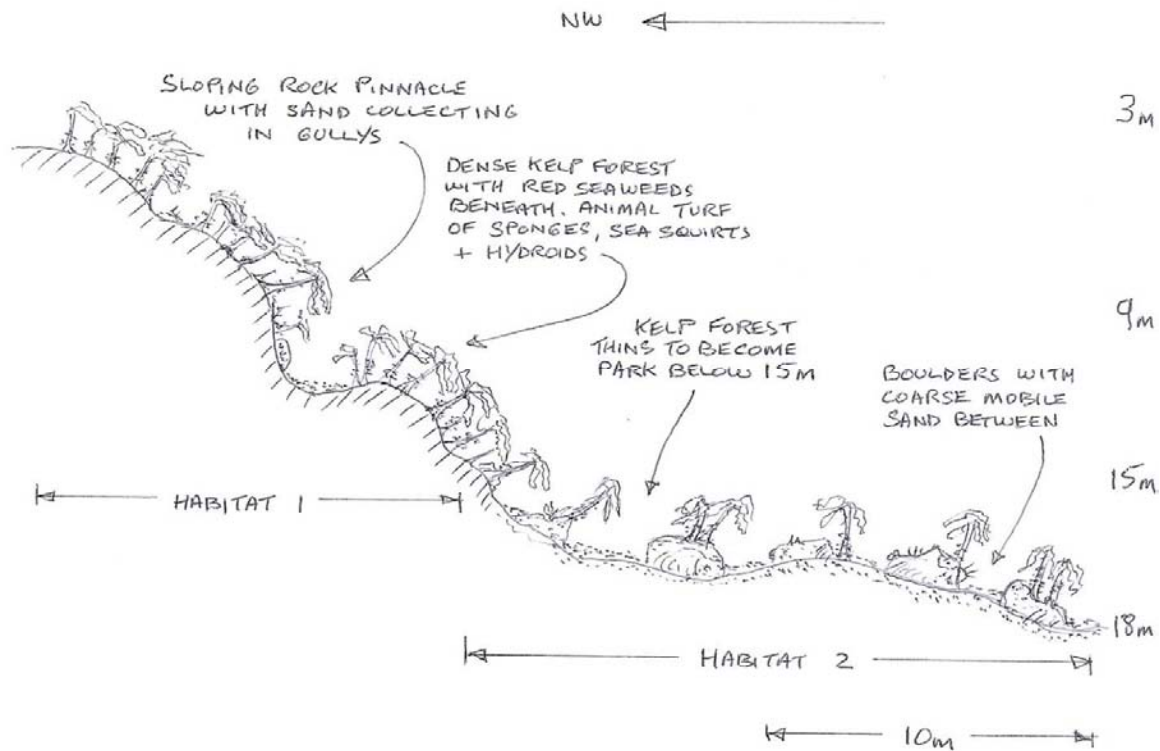 NW
SLOPING ROCK PINNACLE
WITH SAND COLLECTING
IN GULLYS
3m
DENSE KELP FOREST
WITH RED SEAWEEDS
BENEATH. ANIMAL TURF
OF SPONGES, SEA SQUIRTS
+ HYDROIDS
9m
KELP FOREST
THINS TO BECOME
PARK BELOW 15M
BOULDERS WITH
COARSE MOBILE
SAND BETWEEN
15m
HABITAT 1
18m
HABITAT 2
10m